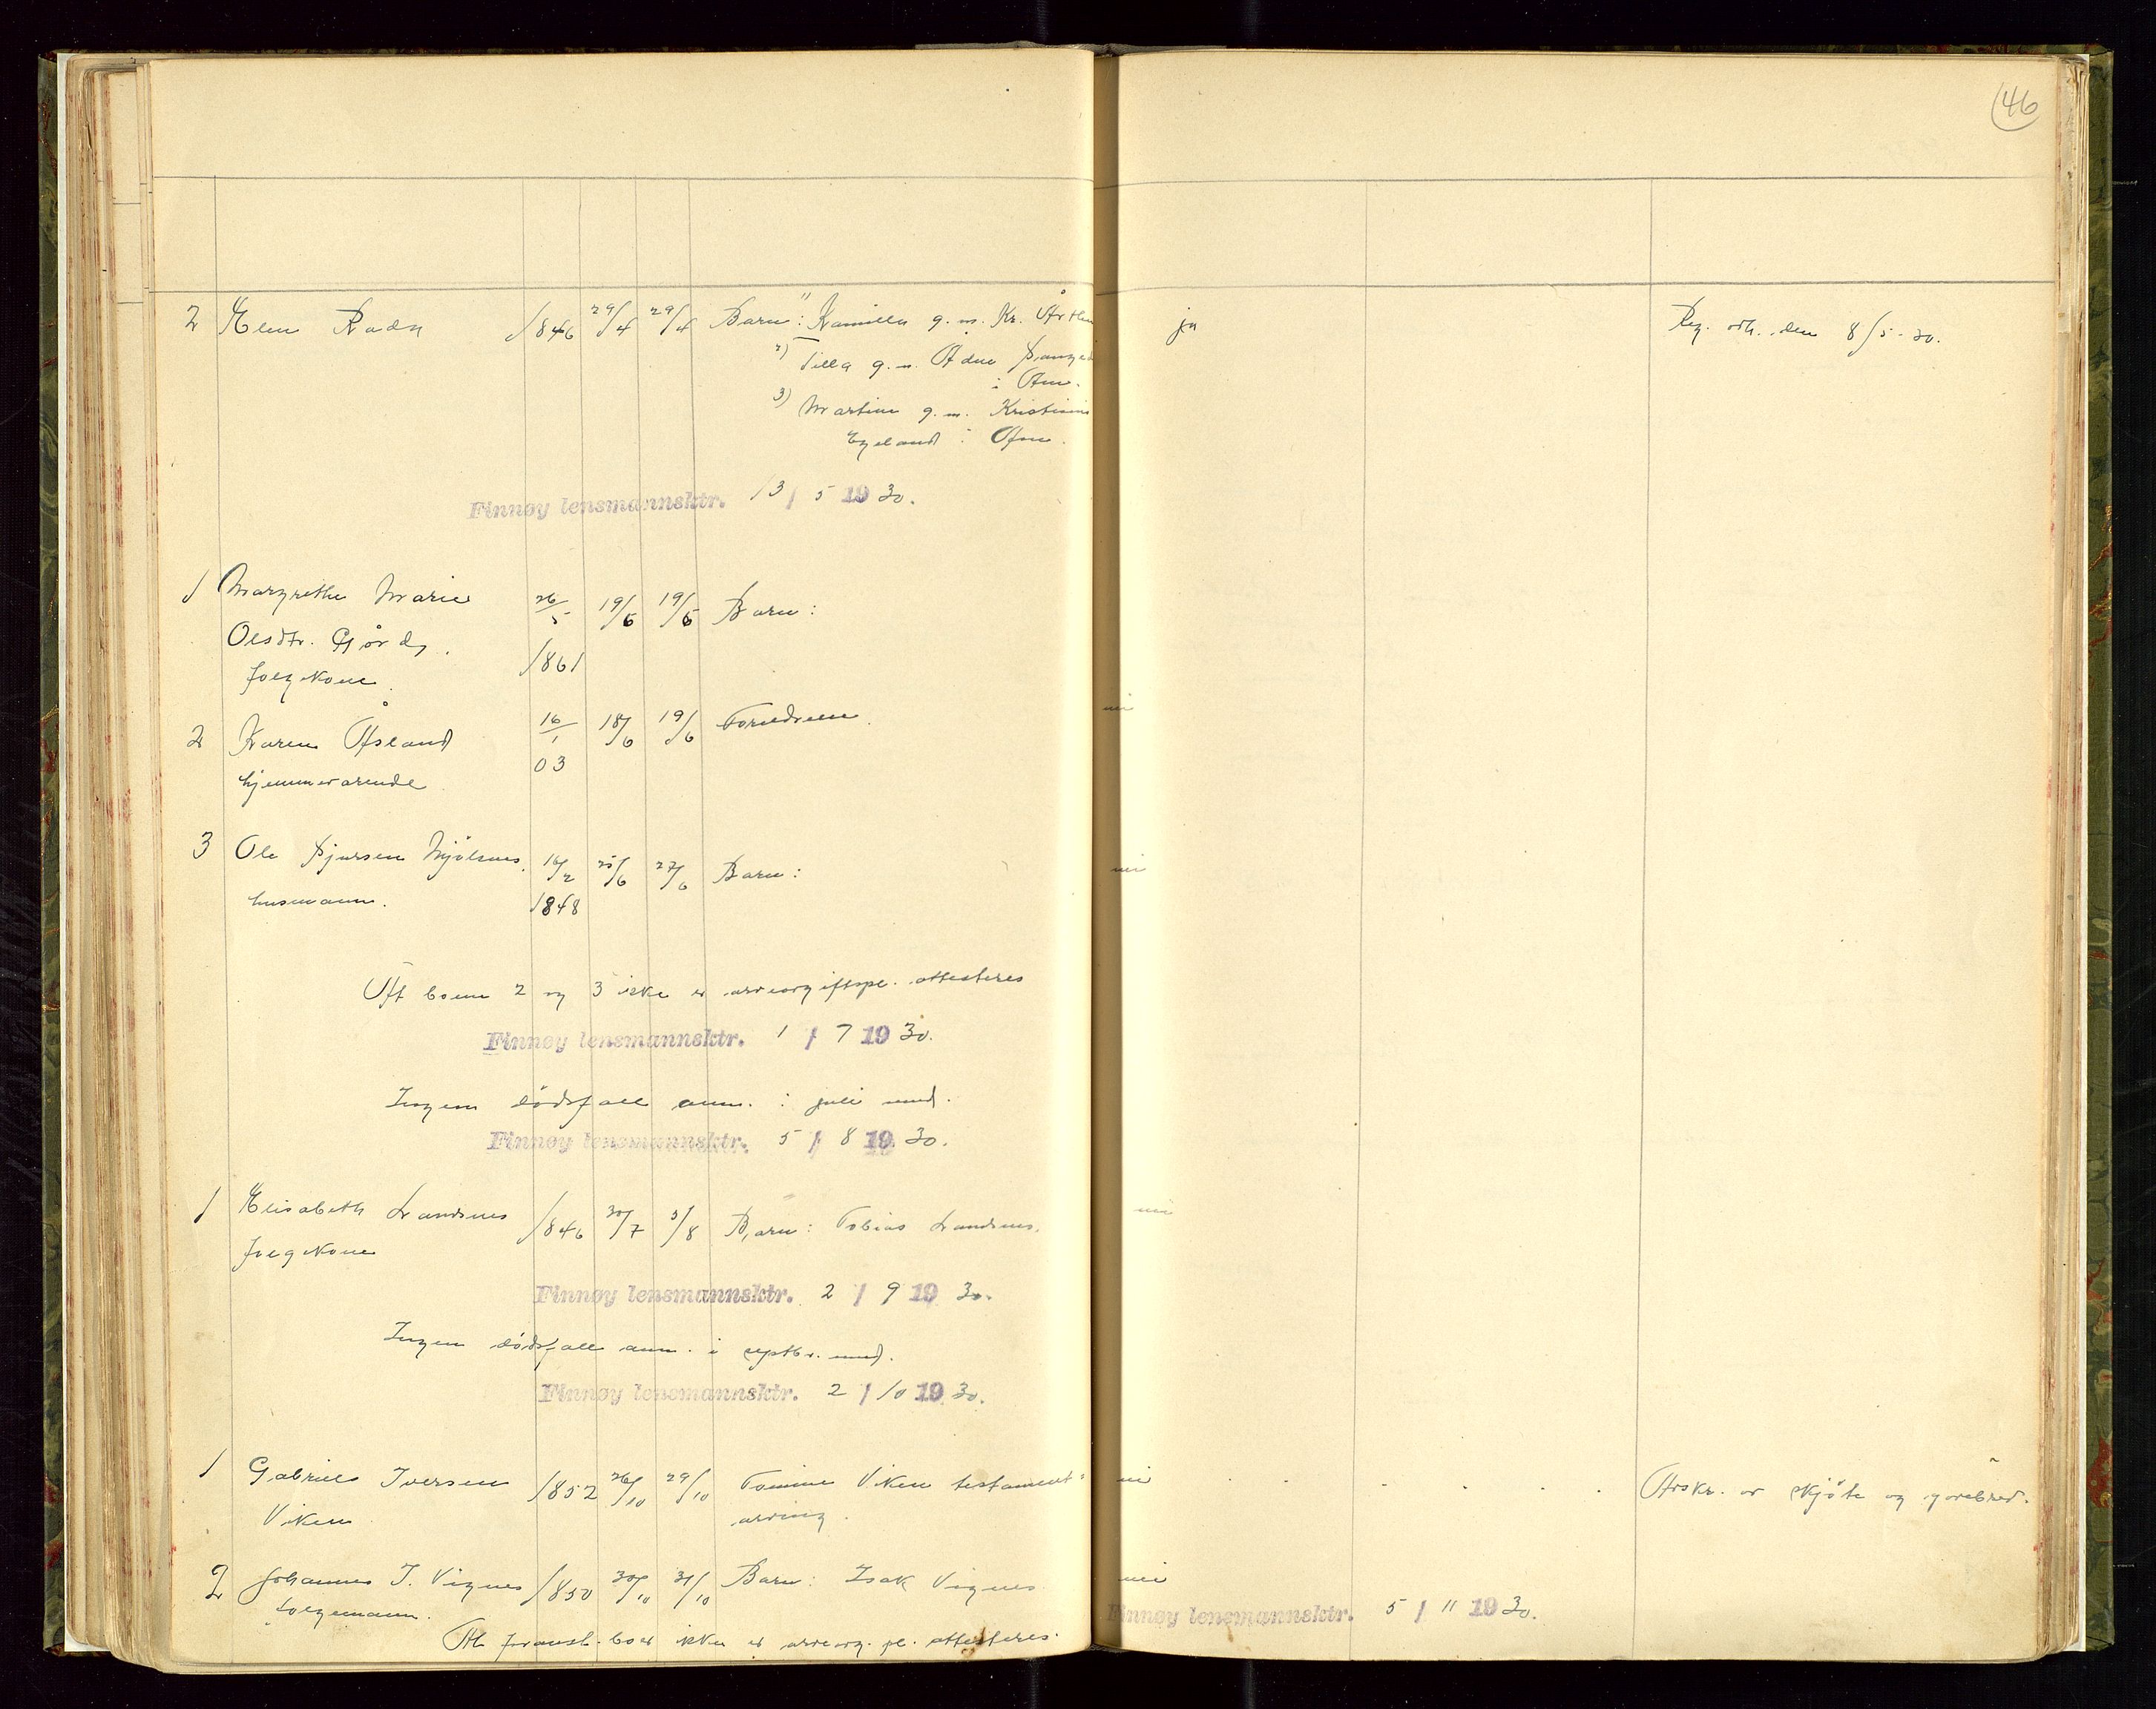 46
2 Elen 1846 29/4 29/4 Barn: 1) Kamilla g. m. Kr. ja Reg. erh. den 8/5-30.
2) Tilla g. m. Ådne
i Åm.
3) Martine g. m. Kristian
Eyeland i
Finnøy lensmannsktr. 13/5 1930.
1 Margrethe Marie 26/5 19/6 19/6 Barn:
Olsdtr. 1861
folgekone
2 Karen Åsland 16/1 18/6 19/6 Foreldrene. nei
hjemmeværende 03
3 Ole Sjursen 16/2 25/6 27/6 Barn: nei
husmann. 1848
At boene 2 og 3 ikke er arveavgiftspl. attesteres
Finnøy lensmannsktr. 1/7 1930.
Ingen dødsfall anm. i juli mnd.
Finnøy lensmannsktr. 5/8 1930.
1 Elisabeth Landsnes 1846 30/7 5/8 Barn: Tobias Landsnes. nei
folgekone
Finnøy lensmannsktr. 2/9 1930.
Ingen dødsfall anm. i septbr. mnd.
Finnøy lensmannsktr. 2/10 1930.
1 Gabriel Iversen 1852 26/10 29/10 Tomine Viken testament- nei Avskr. av skjøte og gavebrev.
Viken arving.
2 Johannes J. Vignes 1850 30/10 31/10 Barn: Isak Vignes nei
folgemann.
At foranst. boer ikke er arveavg. pl. attesteres. Finnøy lensmannsktr. 5/11 1930.